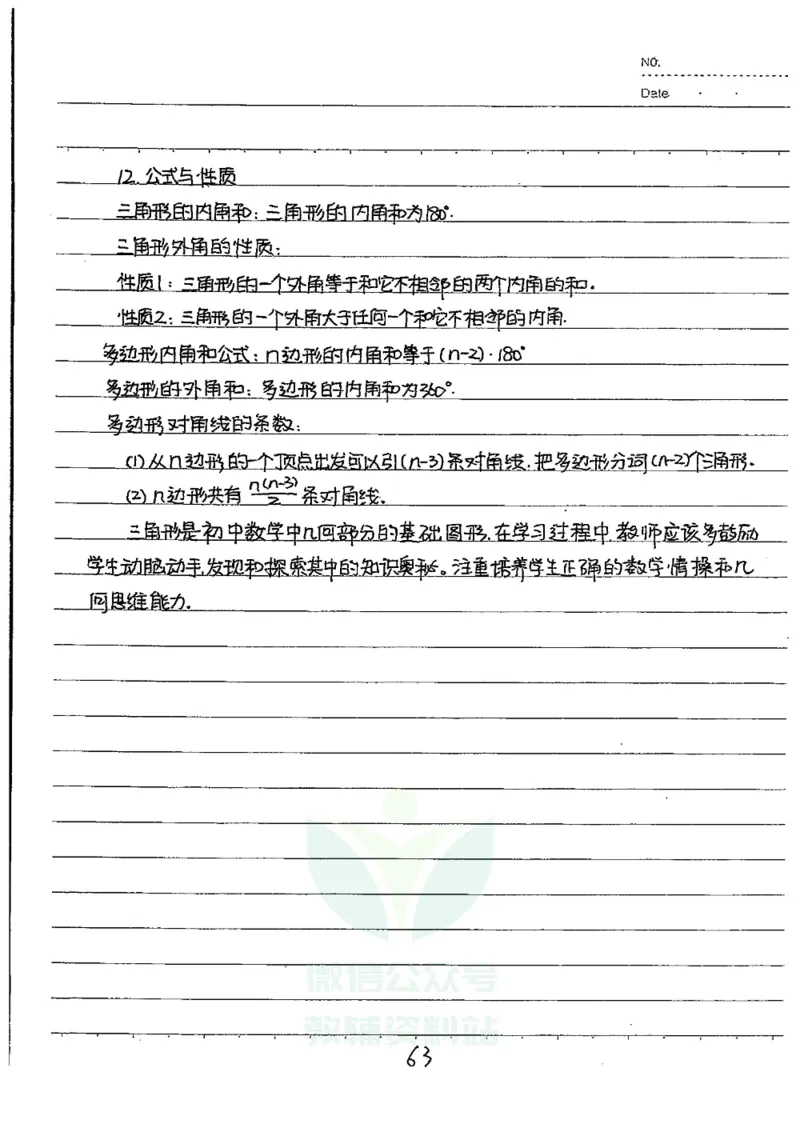 NO.
Date
12.公式与性质
三角形的内角和:三角形的内角和为180°.
三角形外角的性质:
性质1:三角形的一个外角等于和它不相邻的两个内角的和.
性质2:三角形的一个外角大于任何一个和它不相邻的内角.
多边形内角和公式:n边形的内角和等于(n-2)·180°
多边形的外角和:多边形的内角和为360°.
多边形对角线的条数:
(1)从n边形的一个顶点出发可以引(n-3)条对角线,把多边形分词(n-2)个三角形.
(2)n边形共有n(n-3)/2条对角线.
三角形是初中数学中几何部分的基础图形,在学习过程中,教师应该多鼓励
学生动脑动手,发现和探索其中的知识奥秘。注重培养学生正确的数学情操和几
何思维能力.
微信公众号
教辅资料站
63